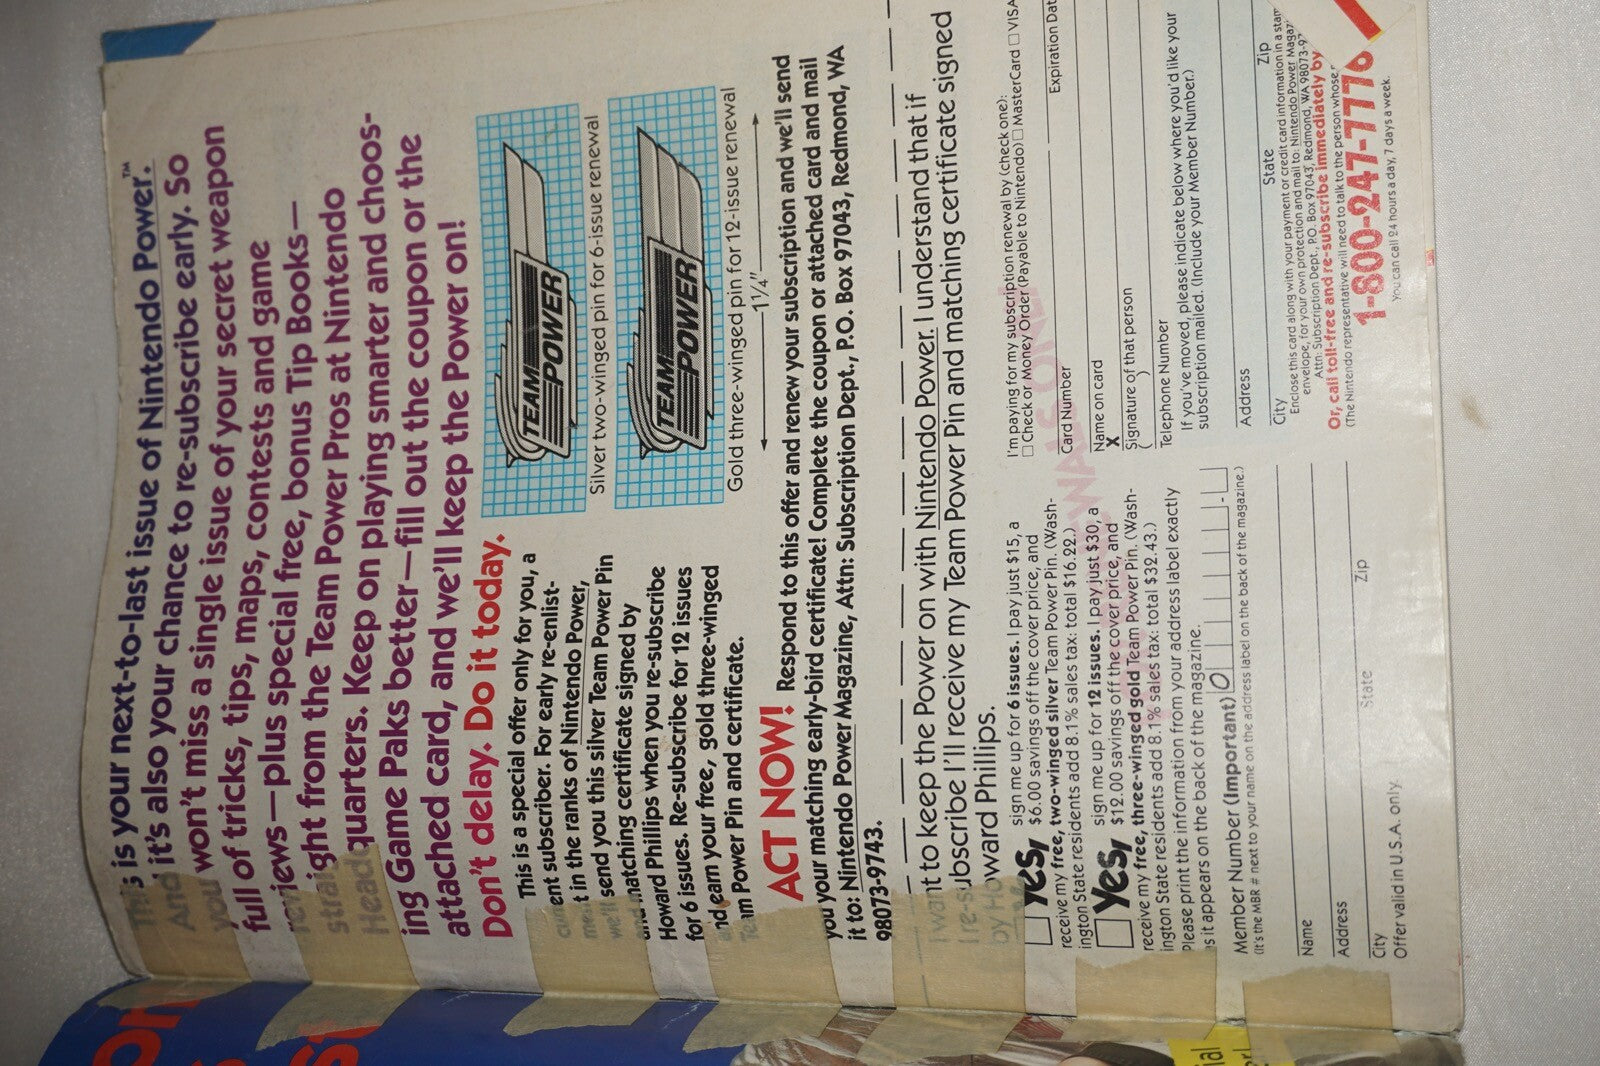 This is your next-to-last issue of Nintendo Power.™
And it's also your chance to re-subscribe early. So
you won't miss a single issue of your secret weapon
full of tricks, tips, maps, contests and game
reviews—plus special free, bonus Tip Books—
straight from the Team Power Pros at Nintendo
Headquarters. Keep on playing smarter and choos-
ing Game Paks better—fill out the coupon or the
attached card, and we'll keep the Power on!
Don't delay. Do it today.
This is a special offer only for you, a
current subscriber. For early re-enlist-
ment in the ranks of Nintendo Power,
we'll send you this silver Team Power Pin
and matching certificate signed by
Howard Phillips when you re-subscribe
for 6 issues. Re-subscribe for 12 issues
and earn your free, gold three-winged
Team Power Pin and certificate.
TEAM
POWER
Silver two-winged pin for 6-issue renewal
TEAM
POWER
Gold three-winged pin for 12-issue renewal
1¼"
ACT NOW! Respond to this offer and renew your subscription and we'll send
you your matching early-bird certificate! Complete the coupon or attached card and mail
it to: Nintendo Power Magazine, Attn: Subscription Dept., P.O. Box 97043, Redmond, WA
98073-9743.
I want to keep the Power on with Nintendo Power. I understand that if
I re-subscribe I'll receive my Team Power Pin and matching certificate signed
by Howard Phillips.
Yes, sign me up for 6 issues. I pay just $15, a
$6.00 savings off the cover price, and
receive my free, two-winged silver Team Power Pin. (Wash-
ington State residents add 8.1% sales tax: total $16.22.)
Yes, sign me up for 12 issues. I pay just $30, a
$12.00 savings off the cover price, and
receive my free, three-winged gold Team Power Pin. (Wash-
ington State residents add 8.1% sales tax: total $32.43.)
Please print the information from your address label exactly
as it appears on the back of the magazine.
Member Number (Important) 0 -
(It's the MBR # next to your name on the address label on the back of the magazine.)
Name
Address
City State Zip
Offer valid in U.S.A. only.
I'm paying for my subscription renewal by (check one):
☐ Check or Money Order (Payable to Nintendo) ☐ MasterCard ☐ VISA
Card Number Expiration Dat
Name on card
X
Signature of that person
( )
Telephone Number
If you've moved, please indicate below where you'd like your
subscription mailed. (Include your Member Number.)
Address
City State Zip
Enclose this card along with your payment or credit card information in a stam
envelope, for your own protection and mail to: Nintendo Power Magaz
Attn: Subscription Dept., P.O. Box 97043, Redmond, WA 98073-97
Or, call toll-free and re-subscribe immediately by
(The Nintendo representative will need to talk to the person whose
1-800-247-7776
You can call 24 hours a day, 7 days a week.